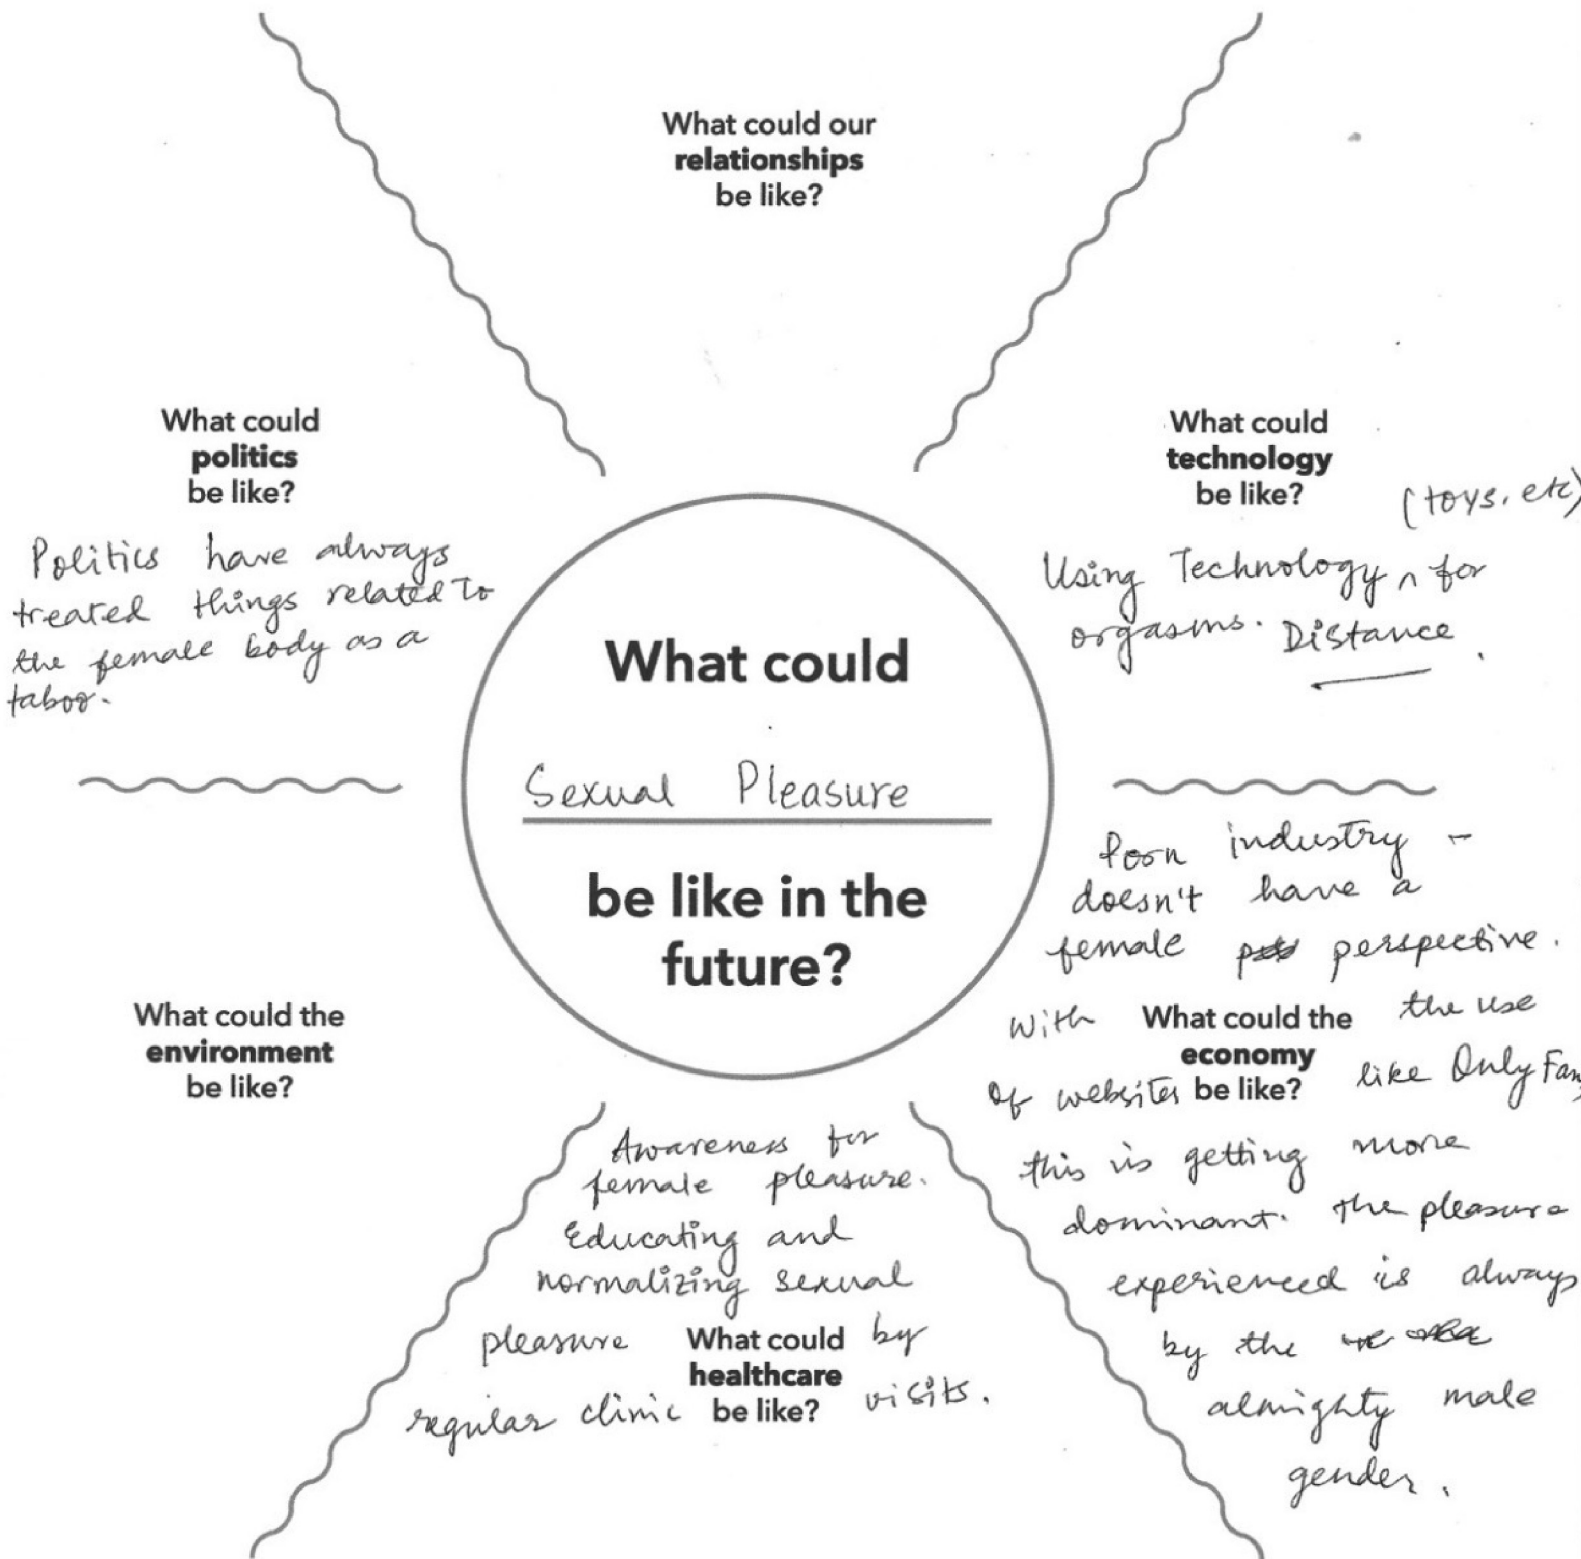 What could our
relationships
be like?
What could
politics
be like?
Politics have always
treated things related to
the female body as a
taboo.
What could
technology
be like?
(toys, etc)
Using Technology ^ for
orgasms. Distance.
What could
Sexual Pleasure
be like in the
future?
Porn industry -
doesn't have a
female perspective.
With the use
of websites like Only Fans
this is getting more
dominant. The pleasure
experienced is always
by the
almighty male
gender.
What could the
economy
be like?
What could the
environment
be like?
Awareness for
female pleasure.
Educating and
normalizing sexual
pleasure by
regular clinic visits.
What could
healthcare
be like?